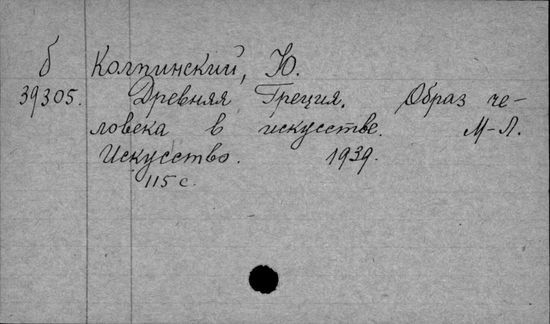 б Колпинский, Ю.
39305. Древняя Греция. Образ че-
ловека в искусстве. М-Л.
Искусство. 1939.
115 с.